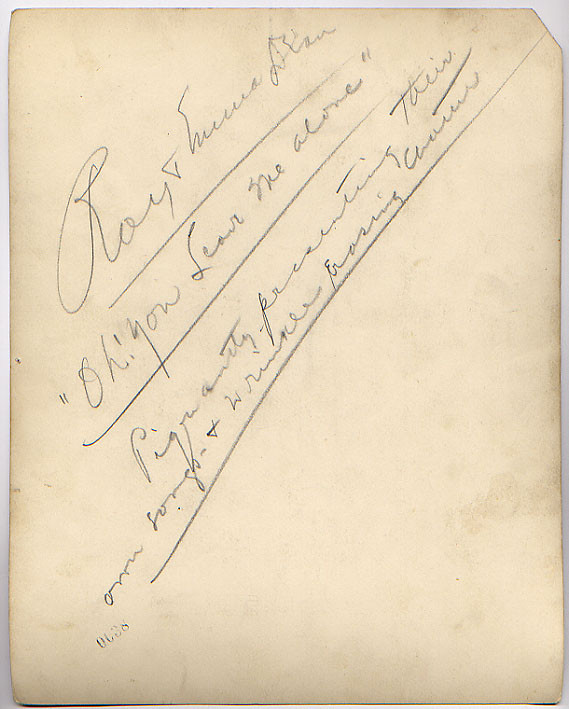 Roy & Emma Dean
"Oh! You Leave Me alone"
Piquantly presenting Their
own songs - & wrinkle erasing